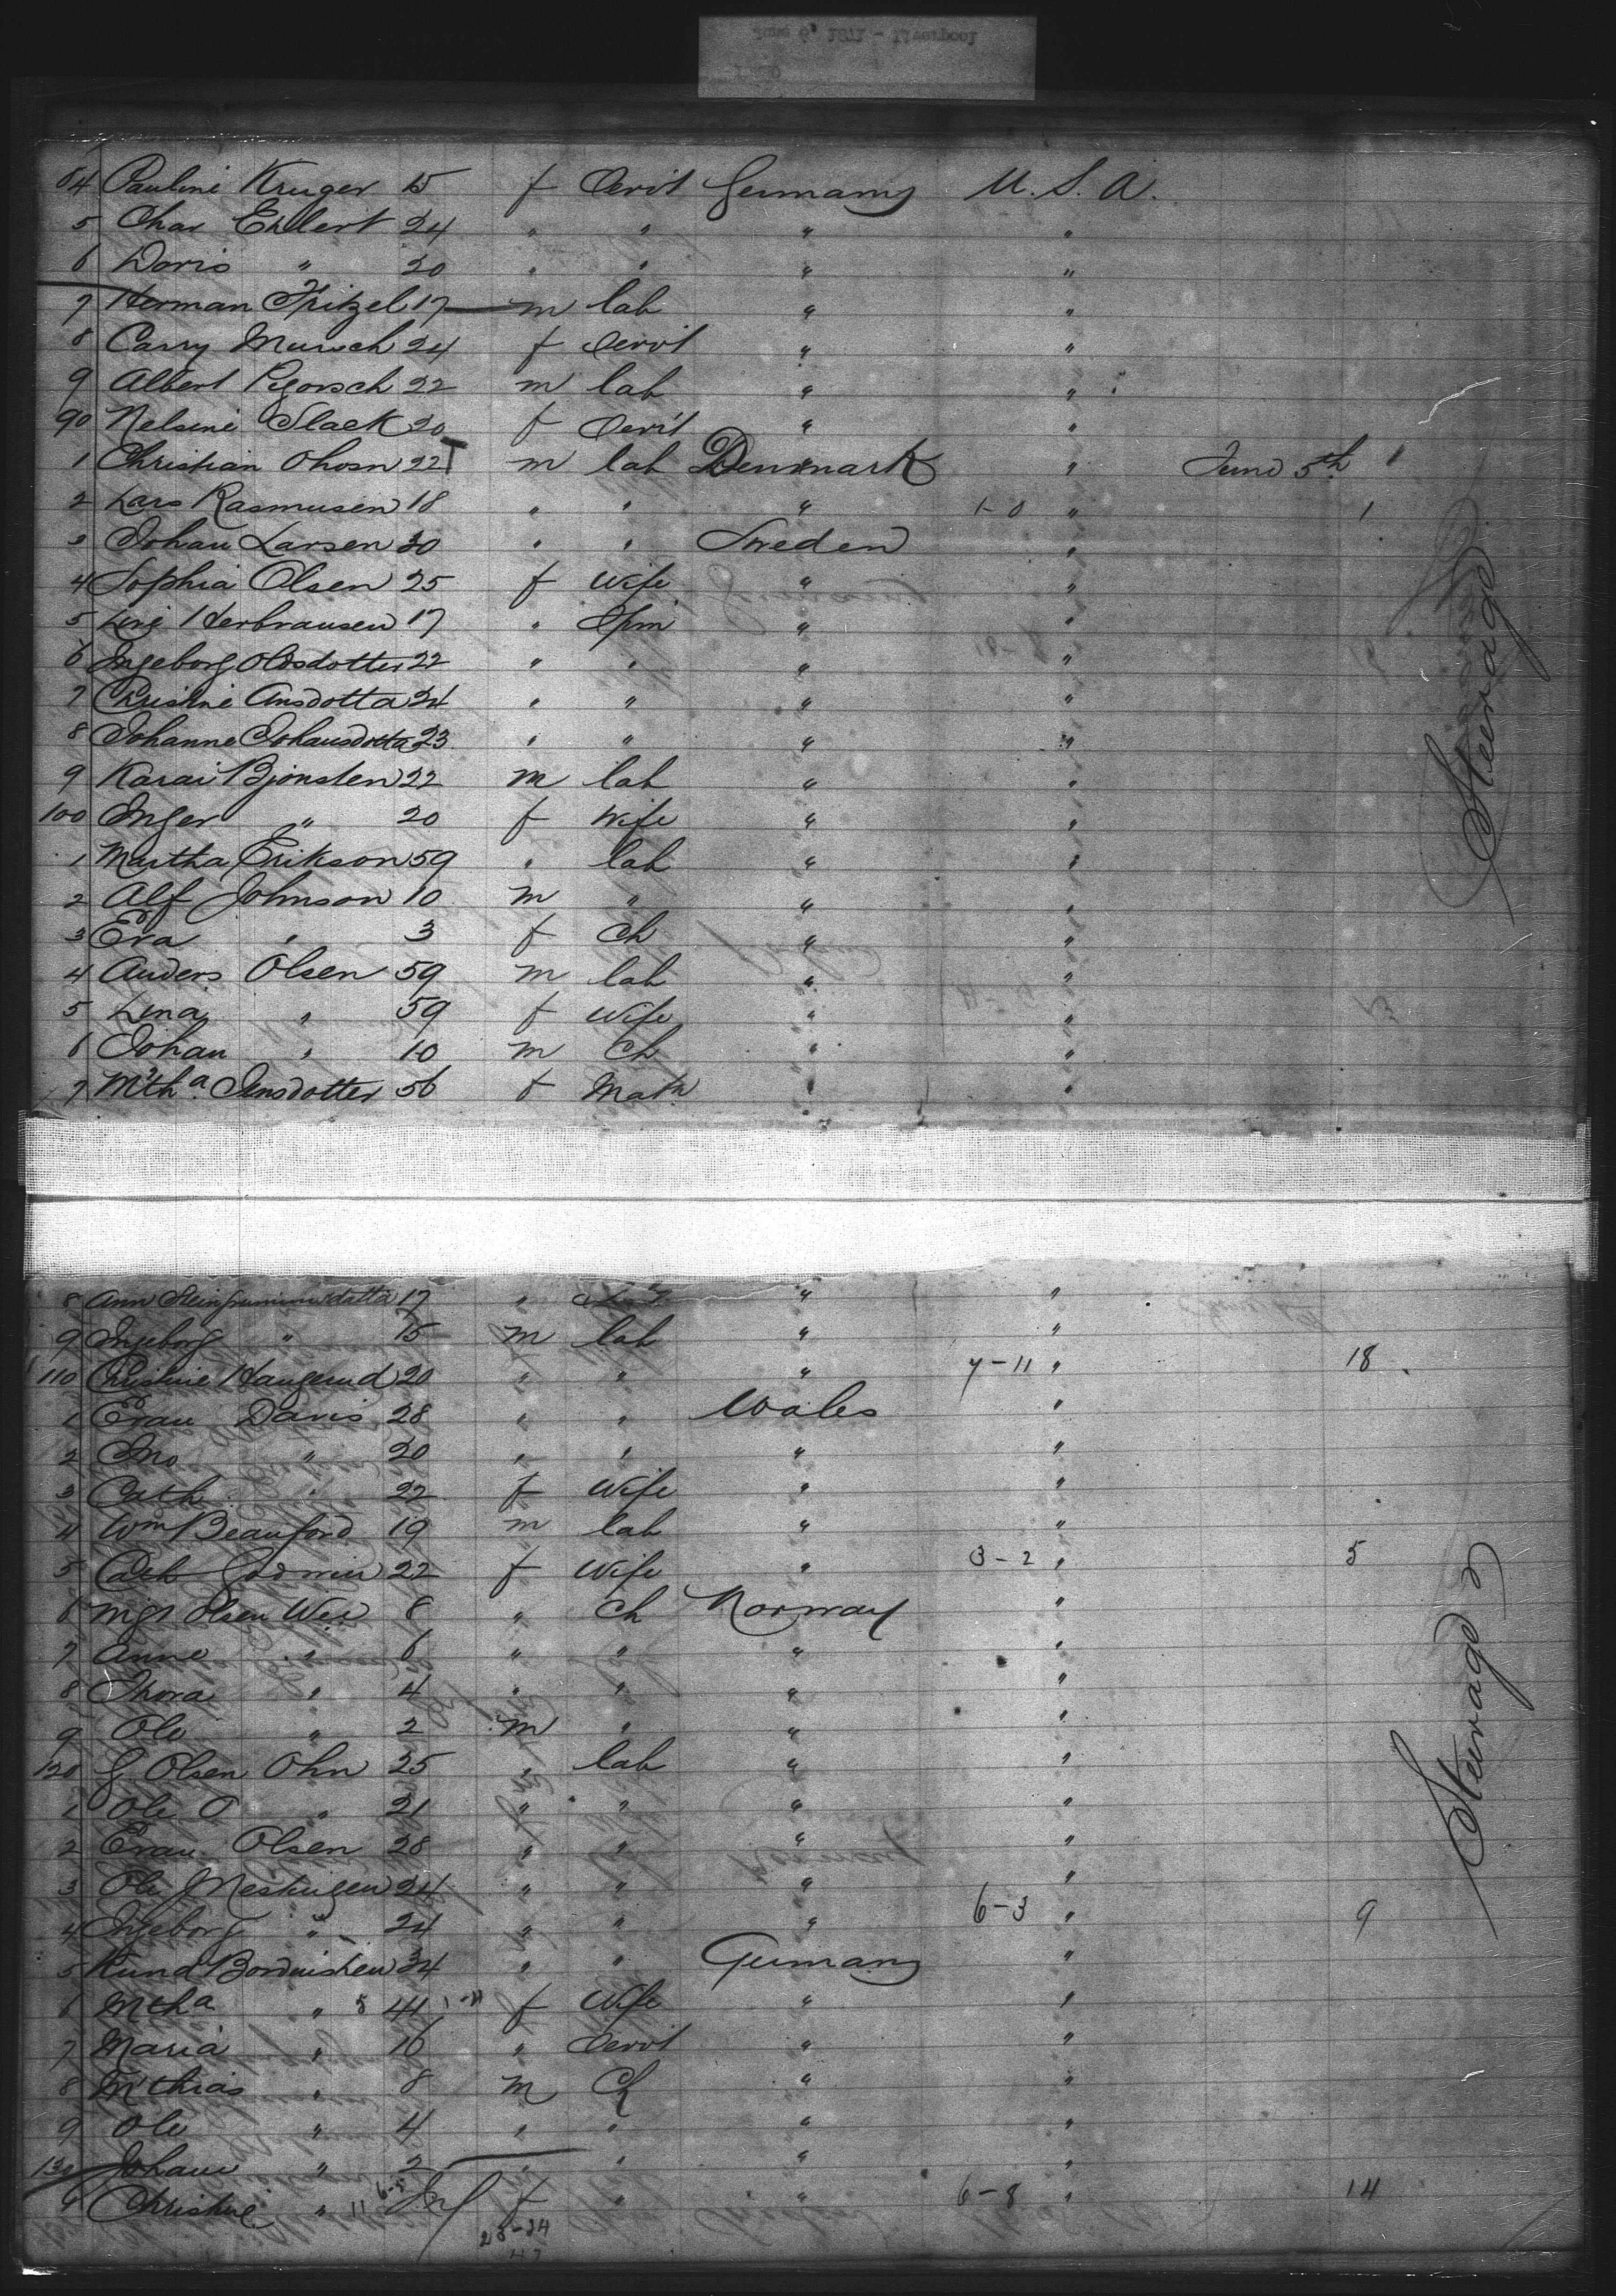 84 Pauline Kruger 15 f Servt Germany U. S. A.
5 Char Ehlert 24 " " " "
6 Doris " 20 " " " "
7 Herman Fritzel 17 m lab " "
8 Carry Mursch 24 f Servt " "
9 Albert Pigorsch 22 m lab " "
90 Nelsine Slack 20 f Servt " "
1 Christian Ohosn 22 m lab Denmark " June 5th 1
2 Lars Rasmusen 18 " " " 1-0 " 1
3 Johan Larsen 30 " " Sweden "
4 Sophia Olsen 25 f Wife " "
5 Herbrausen 17 " Spin " "
6 Ingeborg Olsdotter 22 " " " "
7 Christine Ansdotta 24 " " " "
8 Johanne Johansdotta 23 " " " "
9 Karai Bjonsten 22 m lab " "
100 Inger " 20 f Wife " "
1 Martha Erikson 59 " lab " "
2 Alf Johnson 10 m " " "
3 Eva " 3 f Ch " "
4 Anders Olsen 59 m lab " "
5 Lena " 59 f Wife " "
6 Johan " 10 m Ch " "
7 Mtha Jensdotter 56 f Matn " "
Steerage
8 Ann 17 " " "
9 Ingeborg " 15 m lab " "
110 Christine Haugerud 20 " " " 7-11 " 18
1 Evan Davis 28 " " Wales "
2 Jno " 20 " " " "
3 Cath " 22 f Wife " "
4 Wm Beauford 19 m lab " "
5 Cath Godwin 22 f Wife " 3-2 " 5
6 Mgt Olsen Wee 8 " Ch Norway "
7 Anne " 6 " " " "
8 Thora " 4 " " " "
9 Ole " 2 m " " "
120 G Olsen Ohn 25 " lab " "
1 Ole O " 21 " " " "
2 Evan Olsen 28 " " " "
3 Ole J Mestingen 24 " " " "
4 Ingeborg " 24 " " " 6-3 " 9
5 Kund 34 " " Germany "
6 Mtha " 41 f Wife " "
7 Maria " 16 " Servt " "
8 Mthias " 8 m Ch " "
9 Ole " 4 " " " "
130 Johann " 2 " " " "
Christine " 11 6-5 Inf f " " 6-8 " 14
23-24
47
Steerage